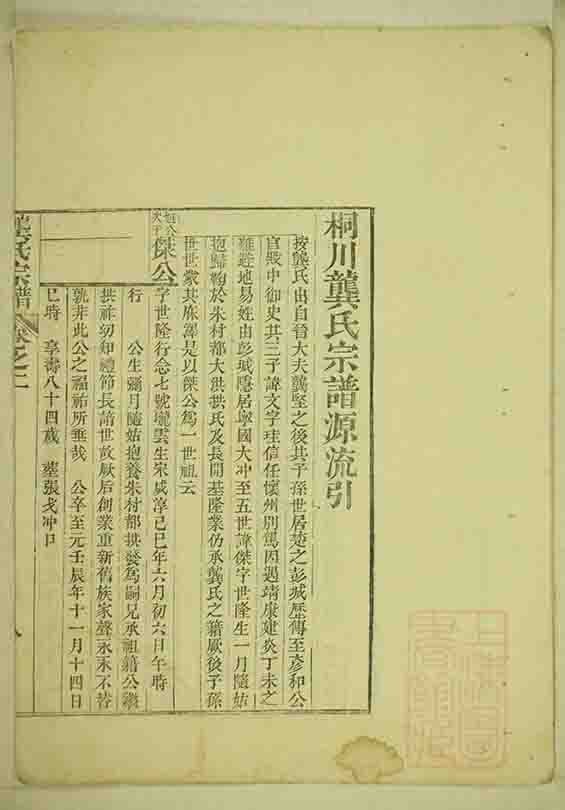 桐川龔氏宗譜源流引
按龔氏出自晉大夫龔堅之後其子孫世居楚之彭城歷傳至彥和公
官殿中御史其三子諱文字珪信任懷州別駕因遇靖康建炎丁未之
難避地易姓由彭城隱居寧國大冲至五世諱傑字世隆生一月隨姑
抱歸鞠於朱村都大洪拱氏及長開基隆業仍承龔氏之籍厥後子孫
世世蒙其庥澤是以傑公爲一世祖云
傑公
字世隆行念七號壠雲生宋咸淳己巳年六月初六日午時
行 公生彌月隨姑抱養朱村都拱發爲嗣兄承祖籍公繼
拱祚初知禮節長諳世故厥后創業重新舊族家聲永永不替
孰非此公之福祐所垂哉 公卒至元壬辰年十一月十四日
巳時 享壽八十四歲 塟張戈冲口
龔氏宗譜 卷之二